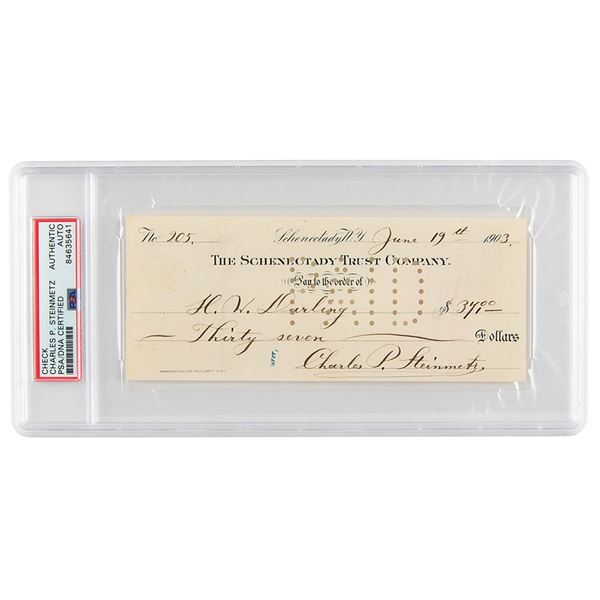 CHECK AUTHENTIC
CHARLES P. STEINMETZ AUTO
PSA/DNA CERTIFIED 84635641
PSA
No 205. Schenectady, N.Y. June 19th 1903.
THE SCHENECTADY TRUST COMPANY.
Pay to the order of
H. V. Darling $37.00
Thirty seven Dollars
Charles P. Steinmetz
PAID